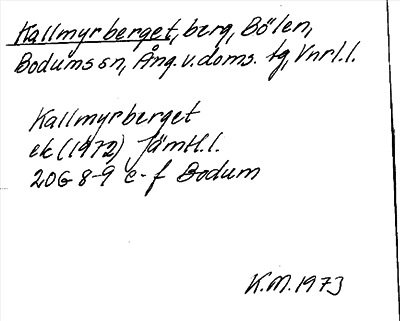 Kallmyrberget, berg, Bölen,
Bodums sn, Ång. v. doms. tg, Vnrl. l.
Kallmyrberget
ek (1972) Jämtl. l.
20G 8-9 e-f Bodum
K.M. 1973